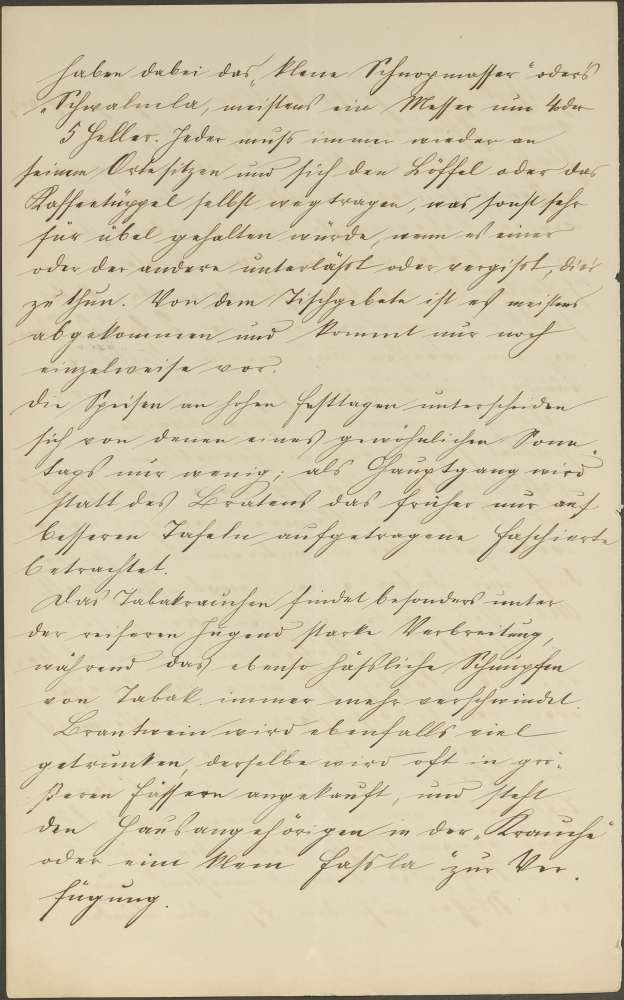 haben dabei das „klene Schnopmasser" oder's
„Schwalmla, meistens ein Messer um 4 oder
5 Heller. Jeder muß immer wieder an
seinem Orte sitzen und sich den Löffel oder das
Kaffeetüppel selbst wegtragen, was sonst sehr
für übel gehalten würde, wenn es einer
oder der andere unterläßt oder vergißt, dies
zu thun. Von dem Tischgebete ist es meistens
abgekommen und kommt nur noch
einzelweise vor.
Die Speisen an hohen Festtagen unterscheiden
sich von denen eines gewöhnlichen Sonn-
tags nur wenig; als Hauptgang wird
statt des Bratens das früher nur auf
besseren Tafeln aufgetragene Faschierte
betrachtet.
Das Tabakrauchen findet besonders unter
der reiferen Jugend starke Verbreitung,
während das ebenso häßliche Schnupfen
von Tabak immer mehr verschwindet.
Brantwein wird ebenfalls viel
getrunken, derselbe wird oft in grö-
ßeren Fässern angekauft, und steht
den Hausangehörigen in der „Krauche"
oder eim klenn Fassla" zur Ver-
fügung.